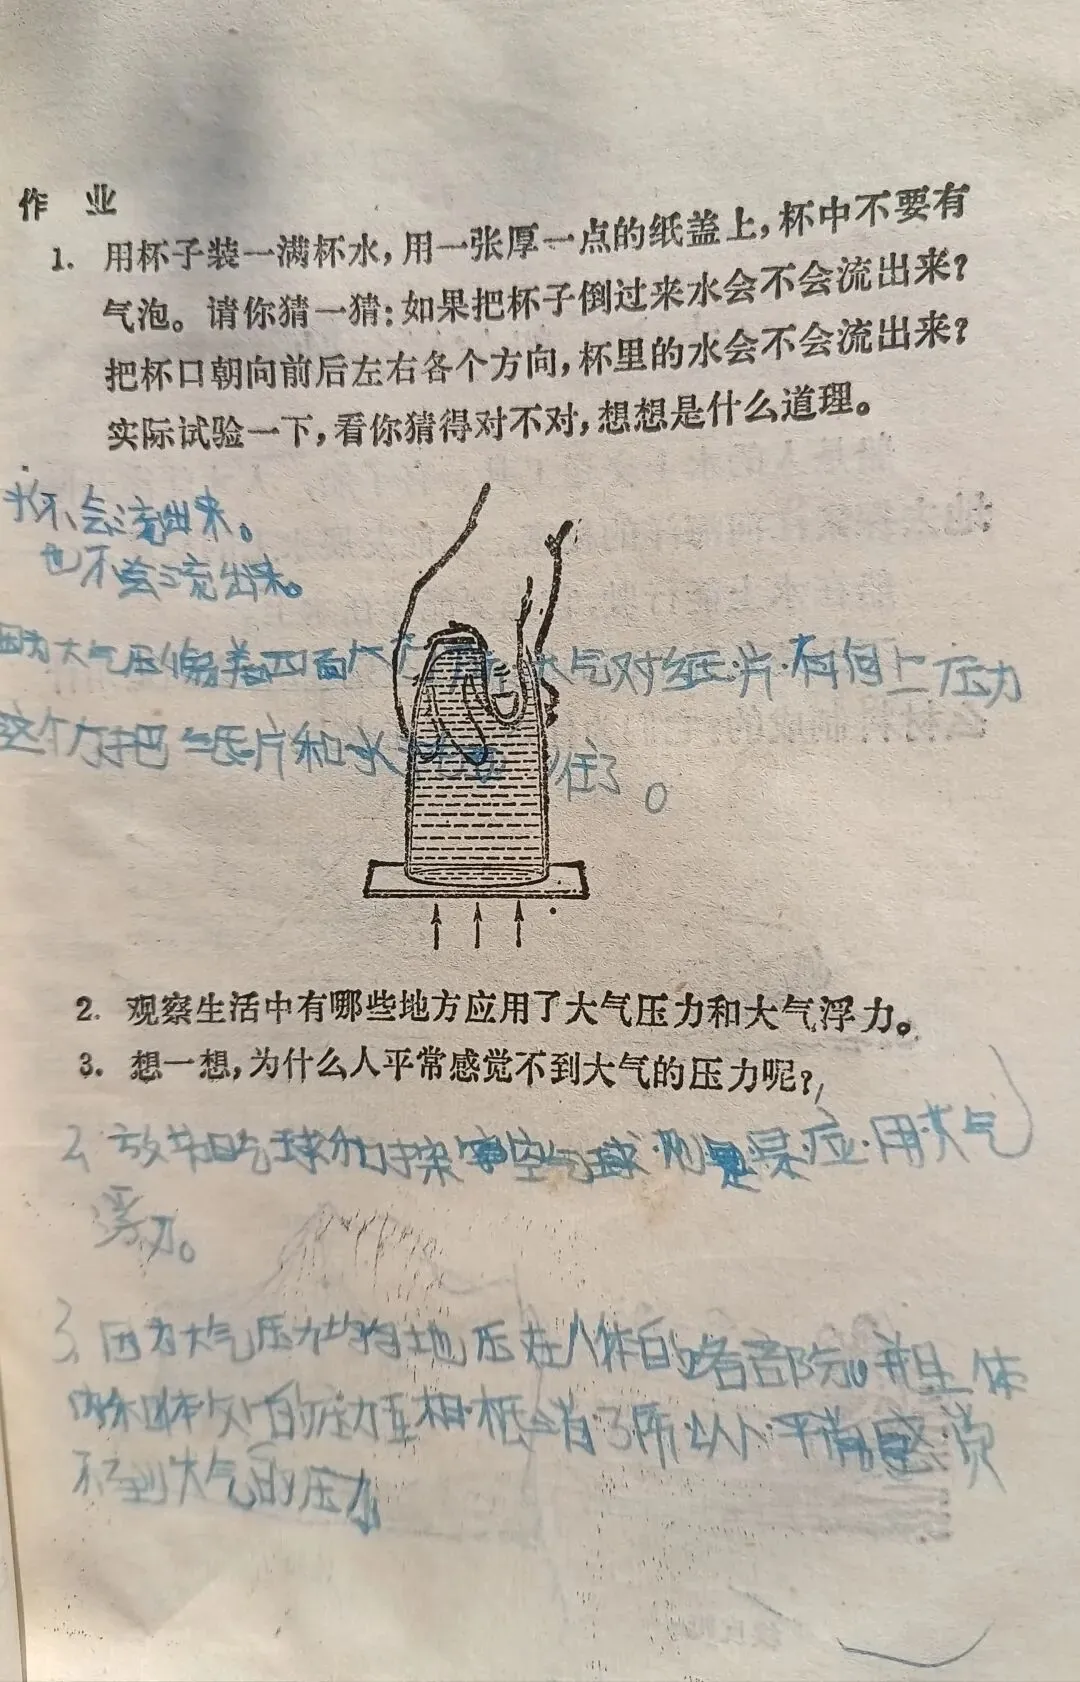 作 业
1. 用杯子装一满杯水，用一张厚一点的纸盖上，杯中不要有
气泡。请你猜一猜：如果把杯子倒过来水会不会流出来？
把杯口朝向前后左右各个方向，杯里的水会不会流出来？
实际试验一下，看你猜得对不对，想想是什么道理。
水不会流出来。
也不会流出来。
因为大气压 着四面 大气对纸片有向上压力
这个力把纸片和水 住了。
2. 观察生活中有哪些地方应用了大气压力和大气浮力。
3. 想一想，为什么人平常感觉不到大气的压力呢？
2、放节日气球和探 空气球 是 应用大气
浮力。
3、因为大气压力均匀地压在人体的各部位 并且 体
内 体外的压力互相抵消了所以人平常感觉
不到大气的压力